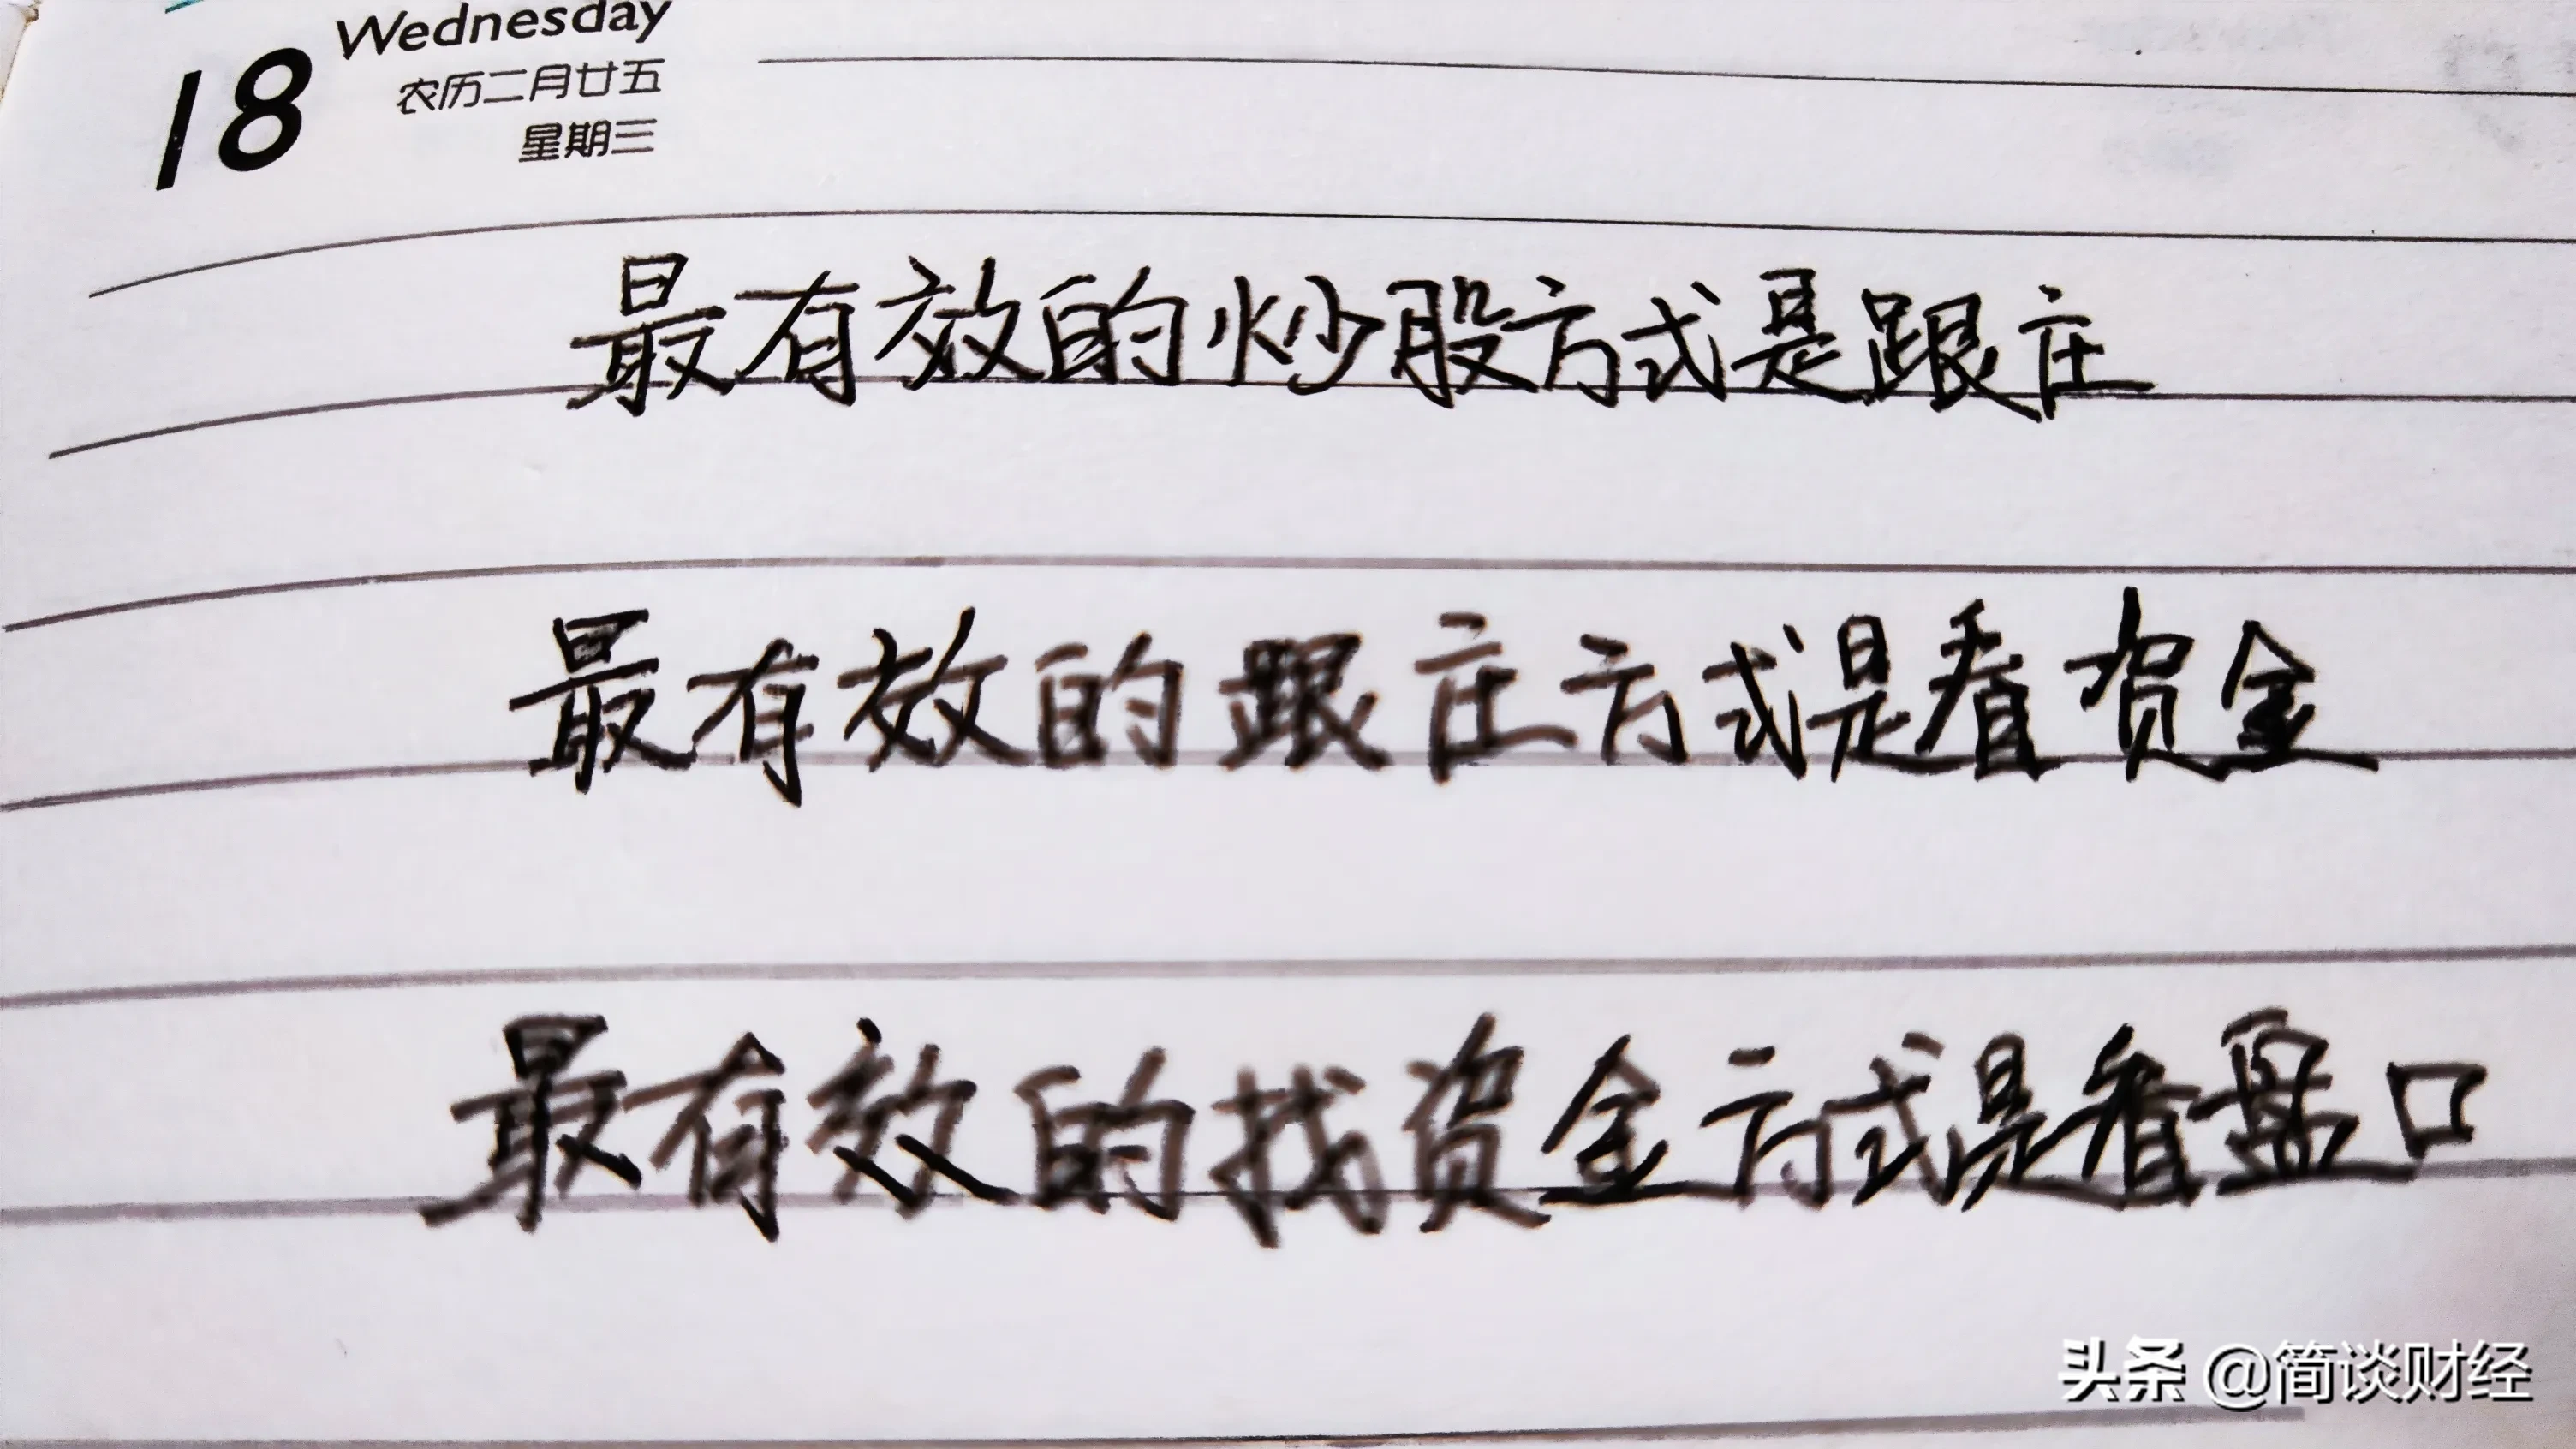 18 Wednesday
农历二月廿五
星期三
最有效的炒股方式是跟庄
最有效的跟庄方式是看资金
最有效的找资金方式是看盘口
头条 @简谈财经